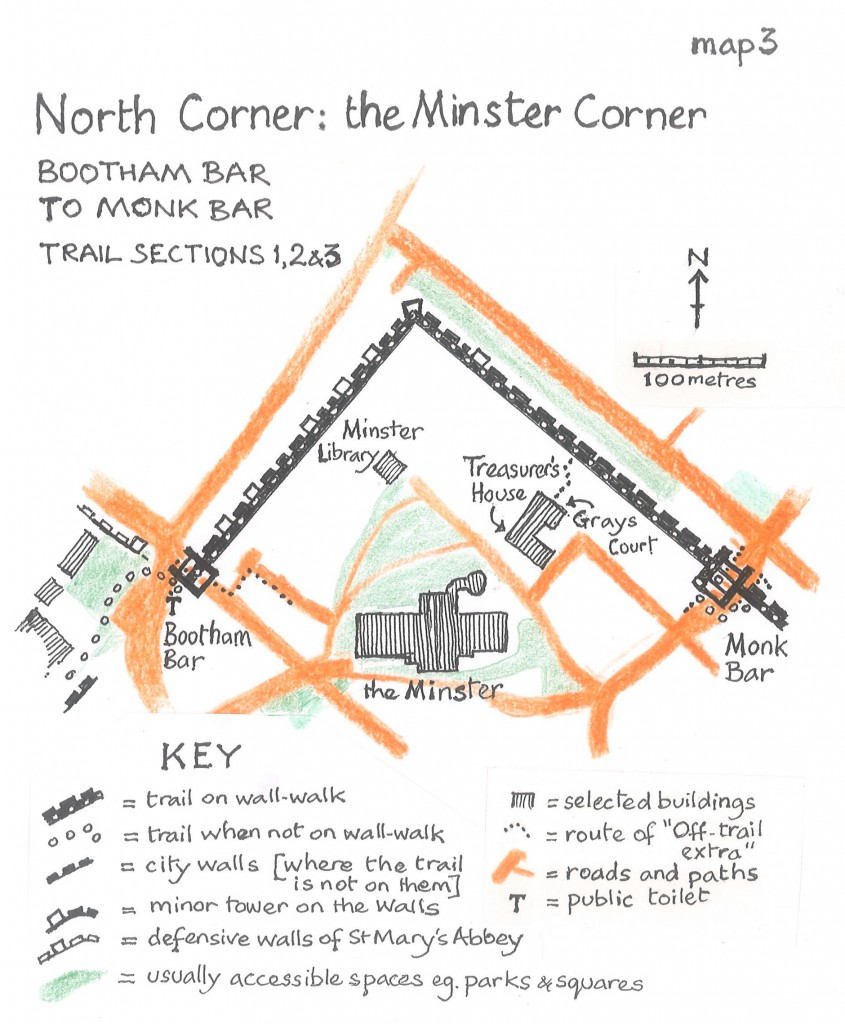 map 3
North Corner: the Minster Corner
BOOTHAM BAR
TO MONK BAR
TRAIL SECTIONS 1,2&3
N
100 metres
Minster
Library
Treasurer's
House
Grays
Court
T
Bootham
Bar
Monk
Bar
the Minster
KEY
= trail on wall-walk
= trail when not on wall-walk
= city walls [where the trail
is not on them]
= minor tower on the walls
= defensive walls of St Mary's Abbey
= usually accessible spaces eg. parks & squares
= selected buildings
= route of "Off-trail
extra"
= roads and paths
T = public toilet